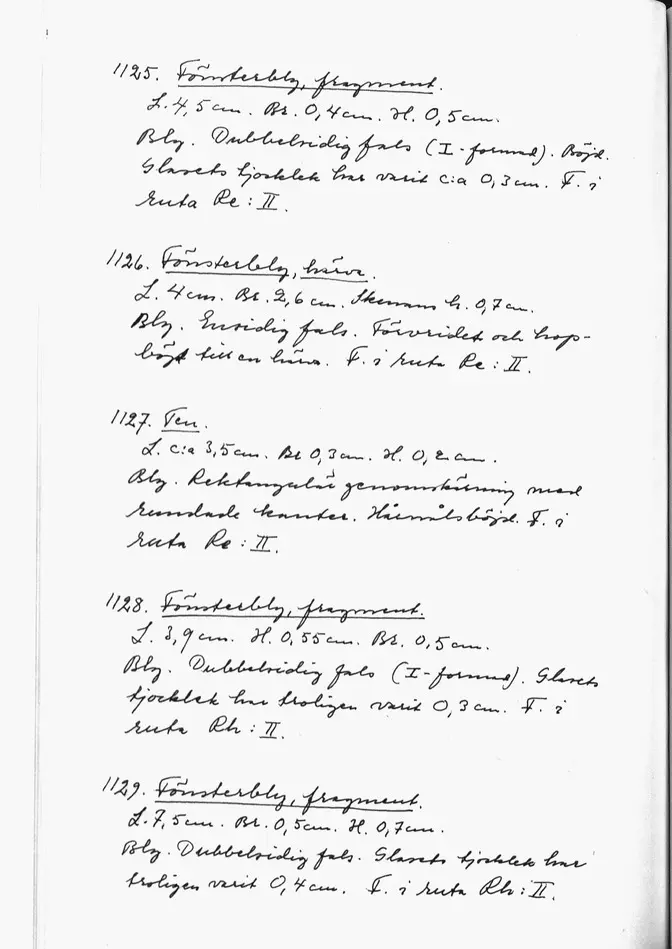 1125. Fönsterbly, fragment.
L. 4,5 cm. Br. 0,4 cm. H. 0,5 cm.
Bly. Dubbelsidig fals (I-formad). Böjd.
Glasets tjocklek har varit c:a 0,3 cm. F. i
ruta Re : II.
1126. Fönsterbly, härva.
L. 4 cm. Br. 2,6 cm. Skenans h. 0,7 cm.
Bly. Ensidig fals. Förvridet och hop-
böjt till en härva. F. i ruta Re : II.
1127. Ten.
L. c:a 3,5 cm. Br 0,3 cm. H. 0,2 cm.
Bly. Rektangulär genomskärning med
rundade kanter. Hårnålsböjd. F. i
ruta Re : II.
1128. Fönsterbly, fragment.
L. 3,9 cm. H. 0,55 cm. Br. 0,5 cm.
Bly. Dubbelsidig fals (I-formad). Glasets
tjocklek har troligen varit 0,3 cm. F. i
ruta Rh : II.
1129. Fönsterbly, fragment.
L. 7,5 cm. Br. 0,5 cm. H. 0,7 cm.
Bly. Dubbelsidig fals. Glasets tjocklek har
troligen varit 0,4 cm. F. i ruta Rh : II.